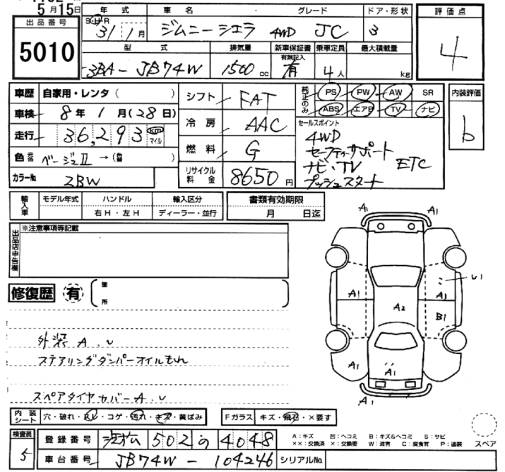 5月15日
出品番号
5010
年式 車名 グレード ドア・形状 評価点
31 1月 ジムニーシエラ 4WD JC 3 4
型式 排気量 新車保証書 有無記入 乗車定員 最大積載量
3BA-JB74W 1500cc 有 4人 kg
車歴 自家用・レンタ( )
車検 8年1月(28日)
走行 36,293 マイル
色 ベージュⅡ
カラーNo ZBW
シフト FAT
冷房 AAC
燃料 G
リサイクル料金 8650円
純正のみ PS PW AW SR
ABS エアB TV ナビ
セールスポイント
4WD
セーフティサポート
ナビ・TV ETC
プッシュスタート
内装評価
b
輸入車 モデル年式 ハンドル 輸入区分 書類有効期限
右H・左H ディーラー・並行 月 日迄
※注意事項等記載
修復歴 有 箇所
外装 A.U
ステアリングダンパーオイルもれ
スペアタイヤカバーA.U
A1 A1
A1
A1 A2 B1
A1 A1
A1
内装シート 穴・破れ・コゲ・汚れ・キズ・黄ばみ Fガラス キズ・飛石・×要す
検査員 5
登録番号 浜松 502 の 4048
車台番号 JB74W-104246 シリアルNo.
A:キズ 凹:ヘコミ B:キズ&ヘコミ S:サビ
××:交換済 ×:要交換 W:波育 C:腐食 P:塗装
スペア